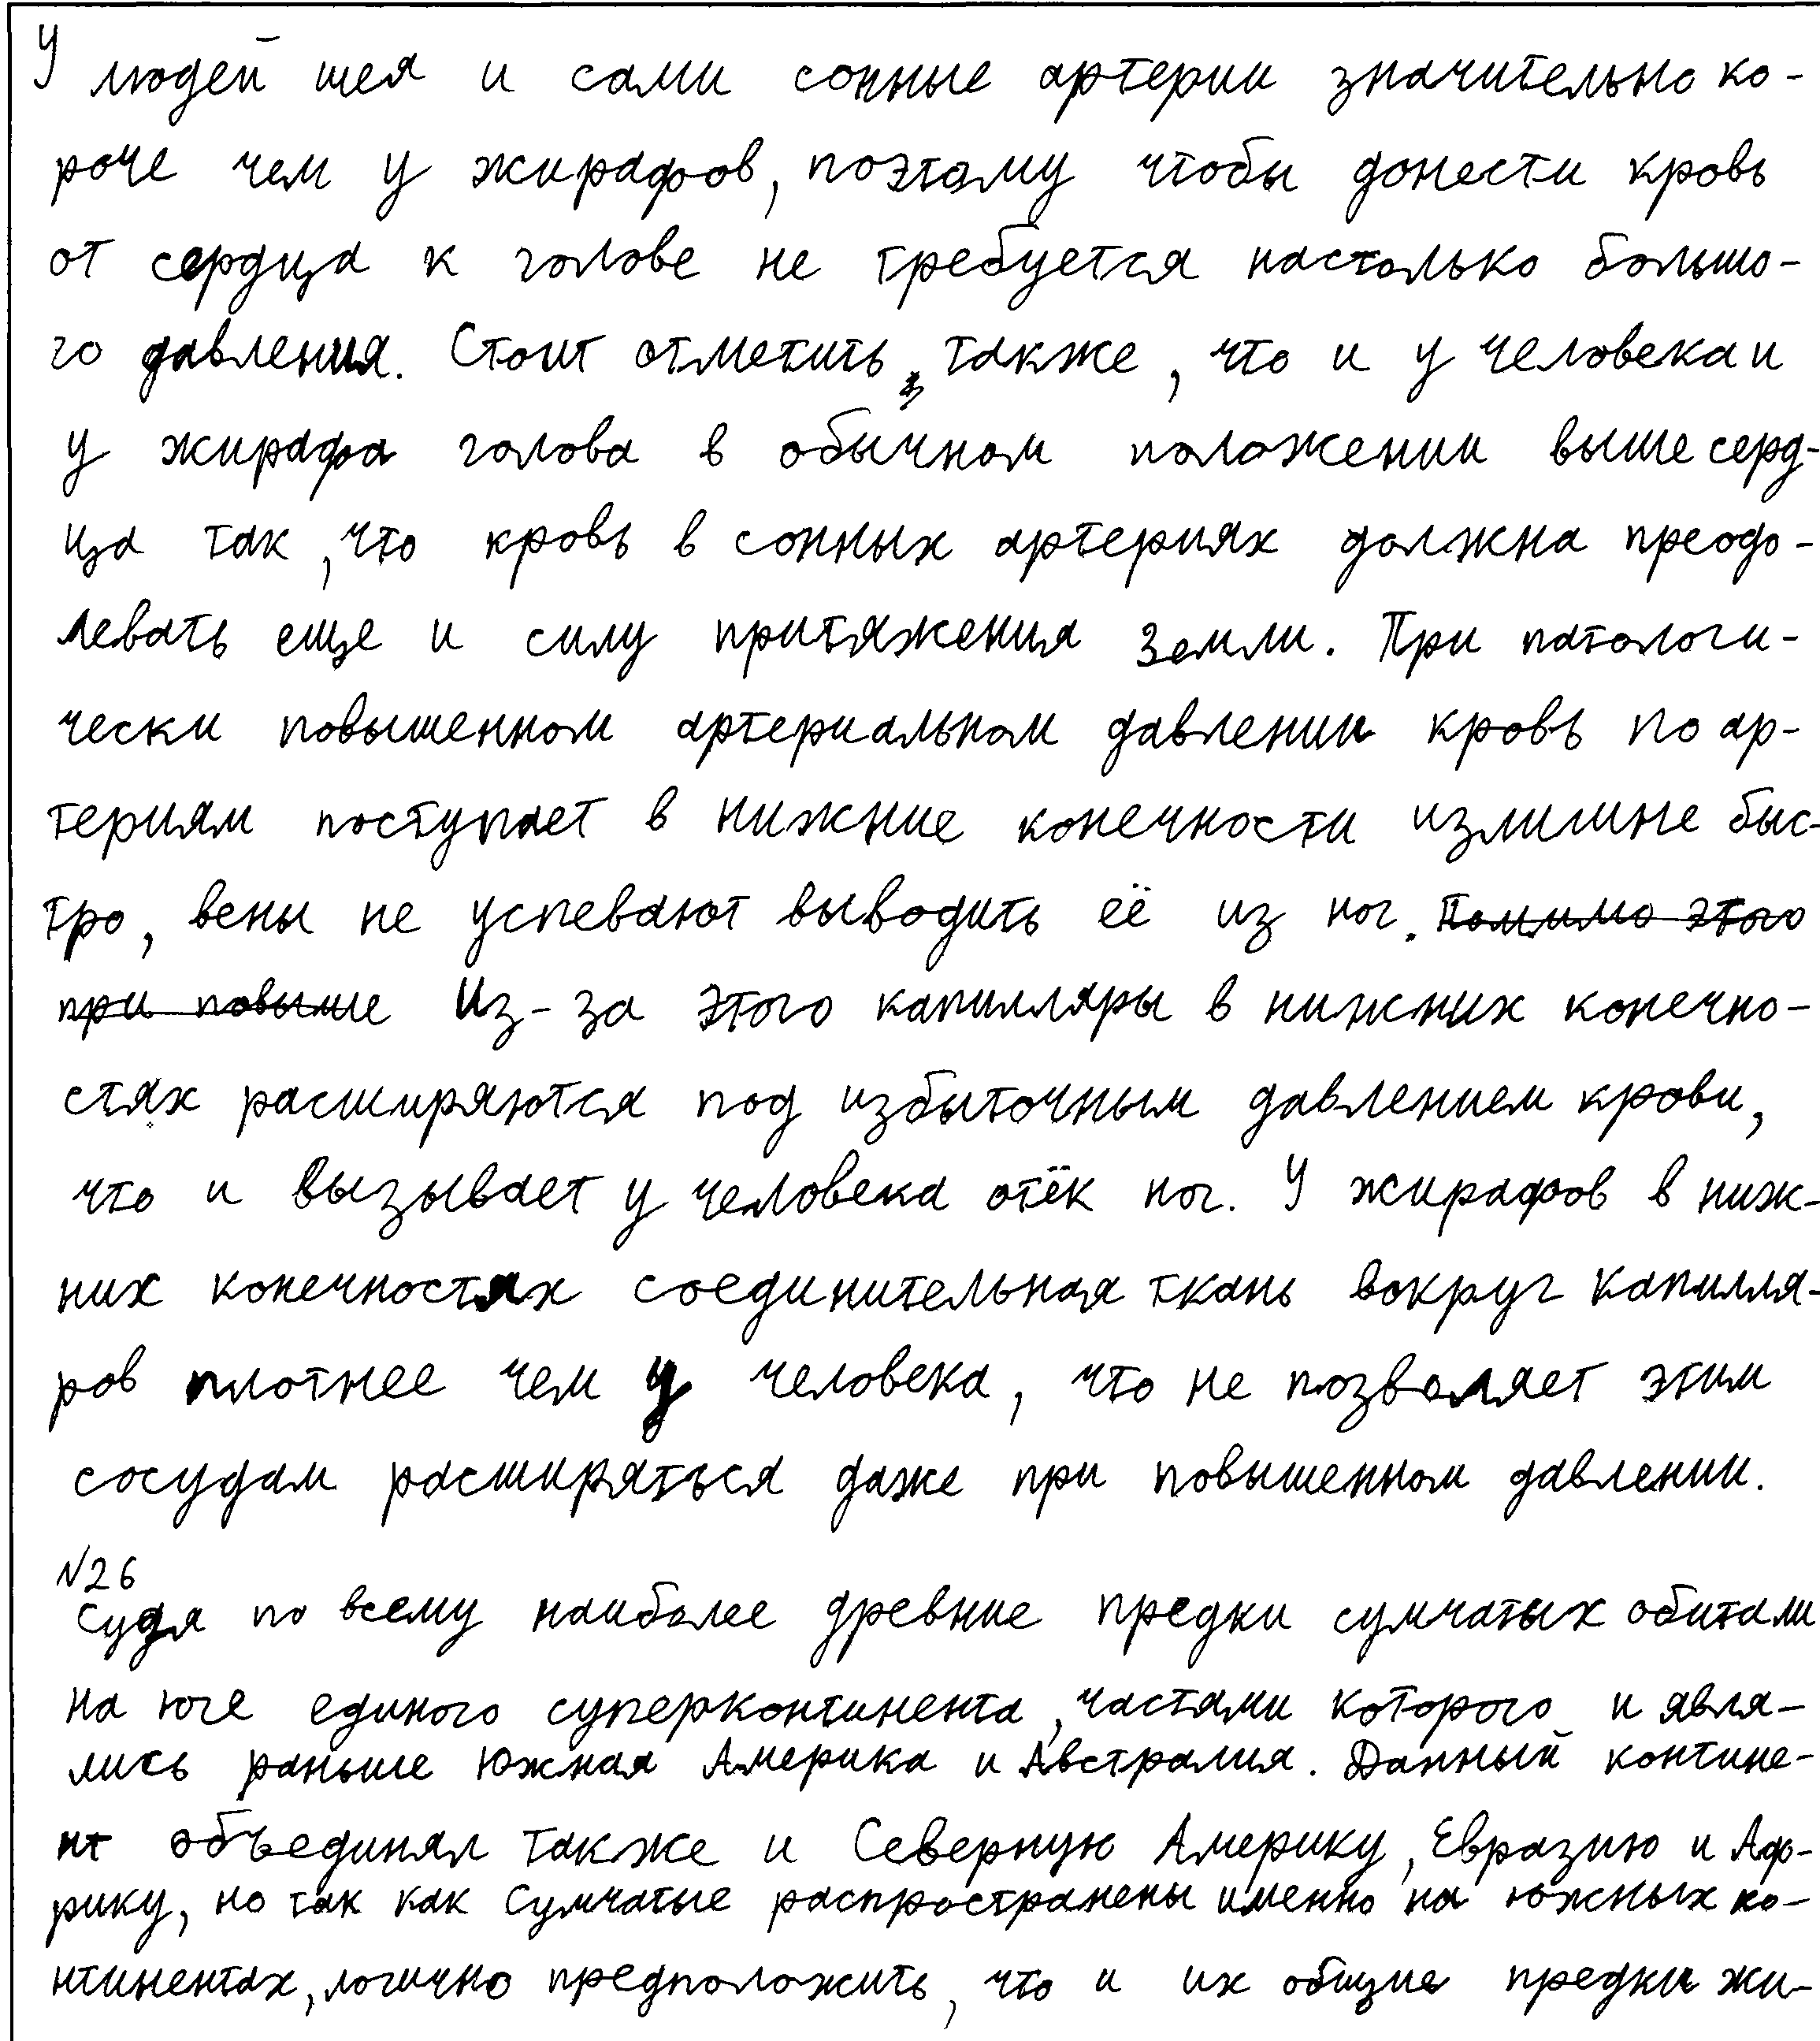 У людей шея и сами сонные артерии значительно ко-
роче чем у жирафов, поэтому чтобы донести кровь
от сердца к голове не требуется настолько большо-
го давления. Стоит отметить, также, что и у человека и
у жирафа голова в обычном положении выше серд-
ца так, что кровь в сонных артериях должна преодо-
левать еще и силу притяжения Земли. При патологи-
чески повышенном артериальном давлении кровь по ар-
териям поступает в нижние конечности излишне быс-
тро, вены не успевают выводить её из ног. Помимо этого
при повыше Из-за этого капилляры в нижних конечно-
стях расширяются под избыточным давлением крови,
что и вызывает у человека отёк ног. У жирафов в ниж-
них конечностях соединительная ткань вокруг капилля-
ров плотнее чем у человека, что не позволяет этим
сосудам расширяться даже при повышенном давлении.
№26
Судя по всему наиболее древние предки сумчатых обитали
на юге единого суперконтинента, частями которого и явля-
лись раньше Южная Америка и Австралия. Данный контине-
нт объединял также и Северную Америку, Евразию и Аф-
рику, но так как сумчатые распространены именно на южных ко-
нтинентах, логично предположить, что и их общие предки жи-